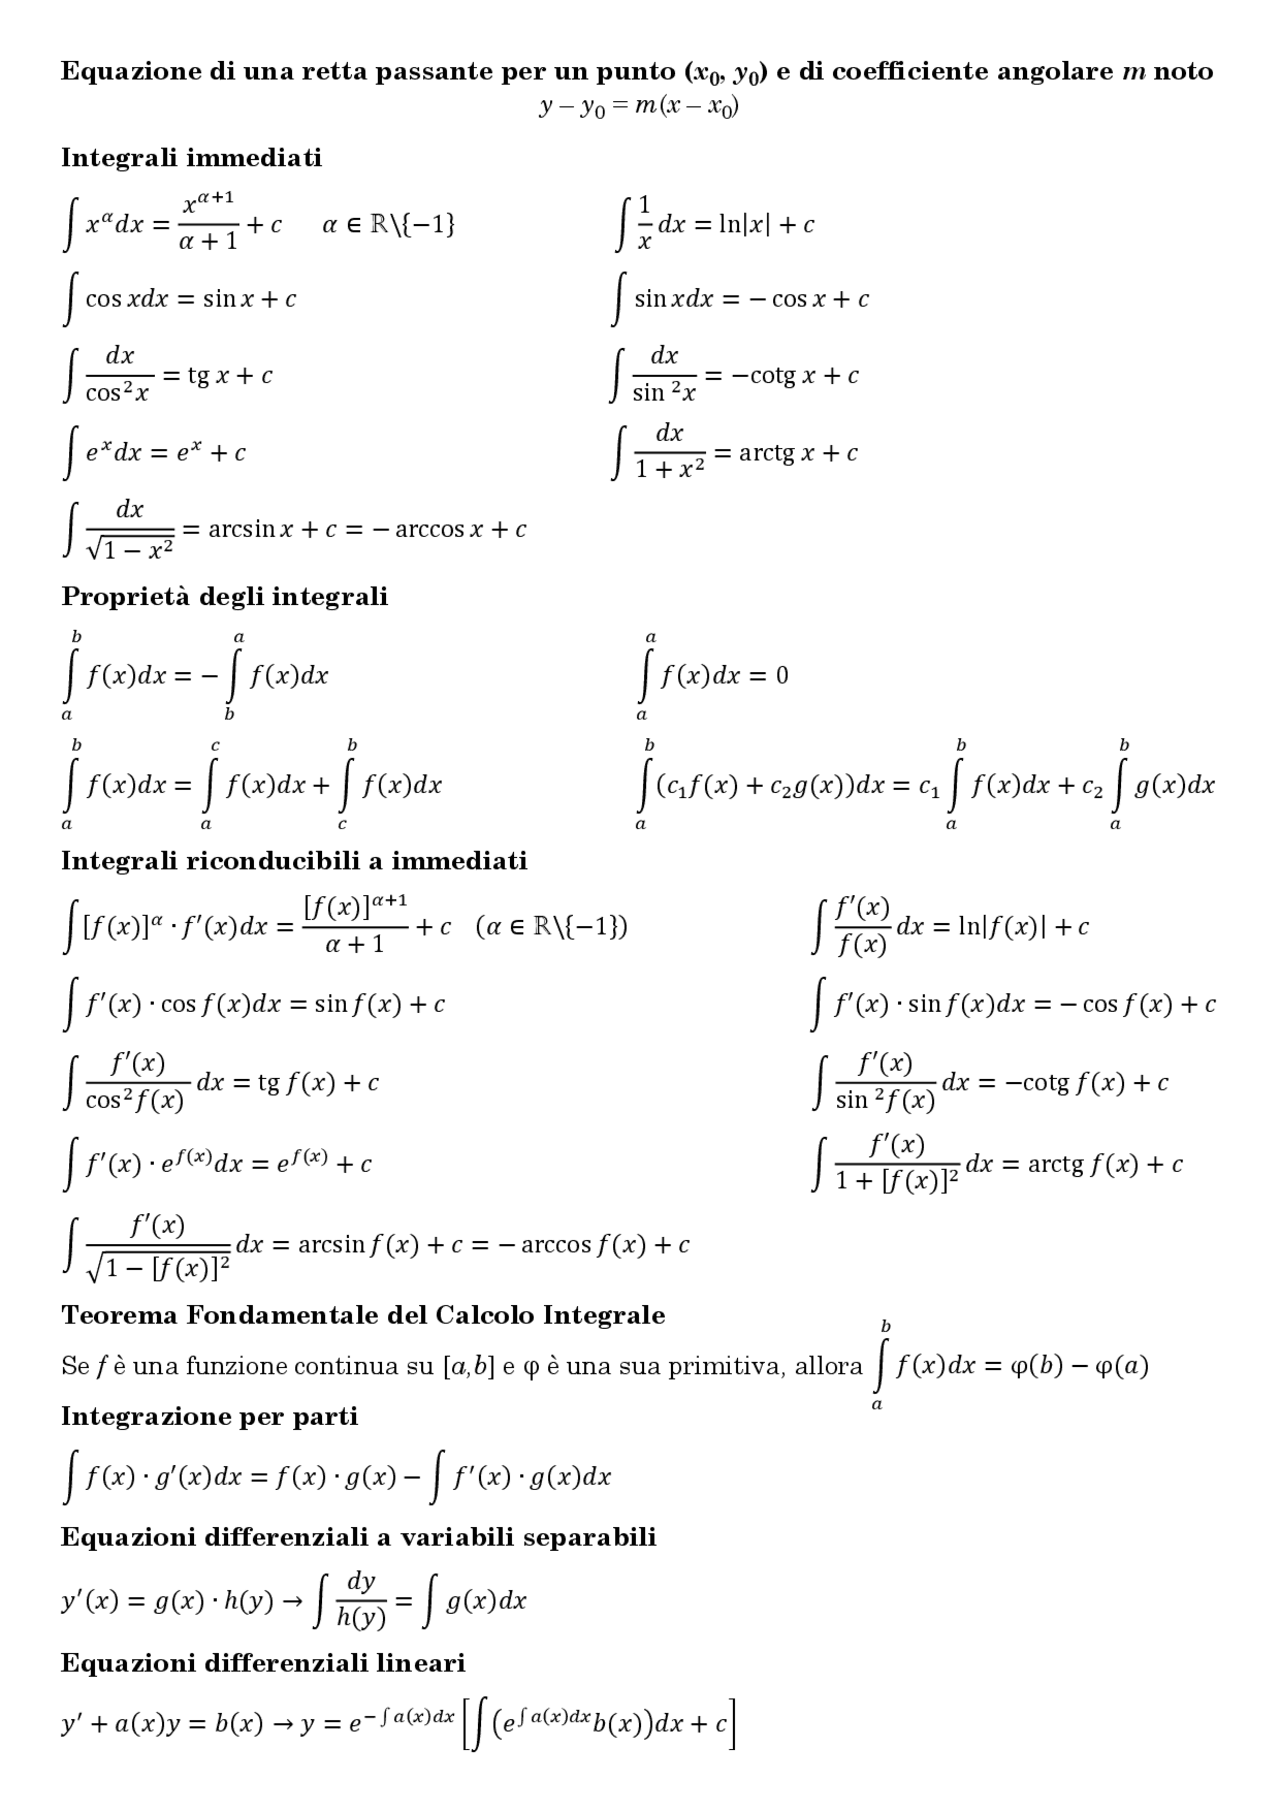 Equazione di una retta passante per un punto (x₀, y₀) e di coefficiente angolare m noto
y – y₀ = m(x – x₀)
Integrali immediati
∫ x^α dx = x^(α+1)/(α + 1) + c    α ∈ ℝ\{−1}    ∫ 1/x dx = ln|x| + c
∫ cos xdx = sin x + c    ∫ sin xdx = − cos x + c
∫ dx/cos²x = tg x + c    ∫ dx/sin ²x = −cotg x + c
∫ e^x dx = e^x + c    ∫ dx/(1 + x²) = arctg x + c
∫ dx/√(1 − x²) = arcsin x + c = − arccos x + c
Proprietà degli integrali
∫_a^b f(x)dx = − ∫_b^a f(x)dx    ∫_a^a f(x)dx = 0
∫_a^b f(x)dx = ∫_a^c f(x)dx + ∫_c^b f(x)dx    ∫_a^b (c₁f(x) + c₂g(x))dx = c₁ ∫_a^b f(x)dx + c₂ ∫_a^b g(x)dx
Integrali riconducibili a immediati
∫ [f(x)]^α · f′(x)dx = [f(x)]^(α+1)/(α + 1) + c  (α ∈ ℝ\{−1})    ∫ f′(x)/f(x) dx = ln|f(x)| + c
∫ f′(x) · cos f(x)dx = sin f(x) + c    ∫ f′(x) · sin f(x)dx = − cos f(x) + c
∫ f′(x)/cos²f(x) dx = tg f(x) + c    ∫ f′(x)/sin ²f(x) dx = −cotg f(x) + c
∫ f′(x) · e^f(x) dx = e^f(x) + c    ∫ f′(x)/(1 + [f(x)]²) dx = arctg f(x) + c
∫ f′(x)/√(1 − [f(x)]²) dx = arcsin f(x) + c = − arccos f(x) + c
Teorema Fondamentale del Calcolo Integrale
Se f è una funzione continua su [a,b] e φ è una sua primitiva, allora ∫_a^b f(x)dx = φ(b) − φ(a)
Integrazione per parti
∫ f(x) · g′(x)dx = f(x) · g(x) − ∫ f′(x) · g(x)dx
Equazioni differenziali a variabili separabili
y′(x) = g(x) · h(y) → ∫ dy/h(y) = ∫ g(x)dx
Equazioni differenziali lineari
y′ + a(x)y = b(x) → y = e^(−∫ a(x)dx) [∫ (e^(∫ a(x)dx) b(x))dx + c]